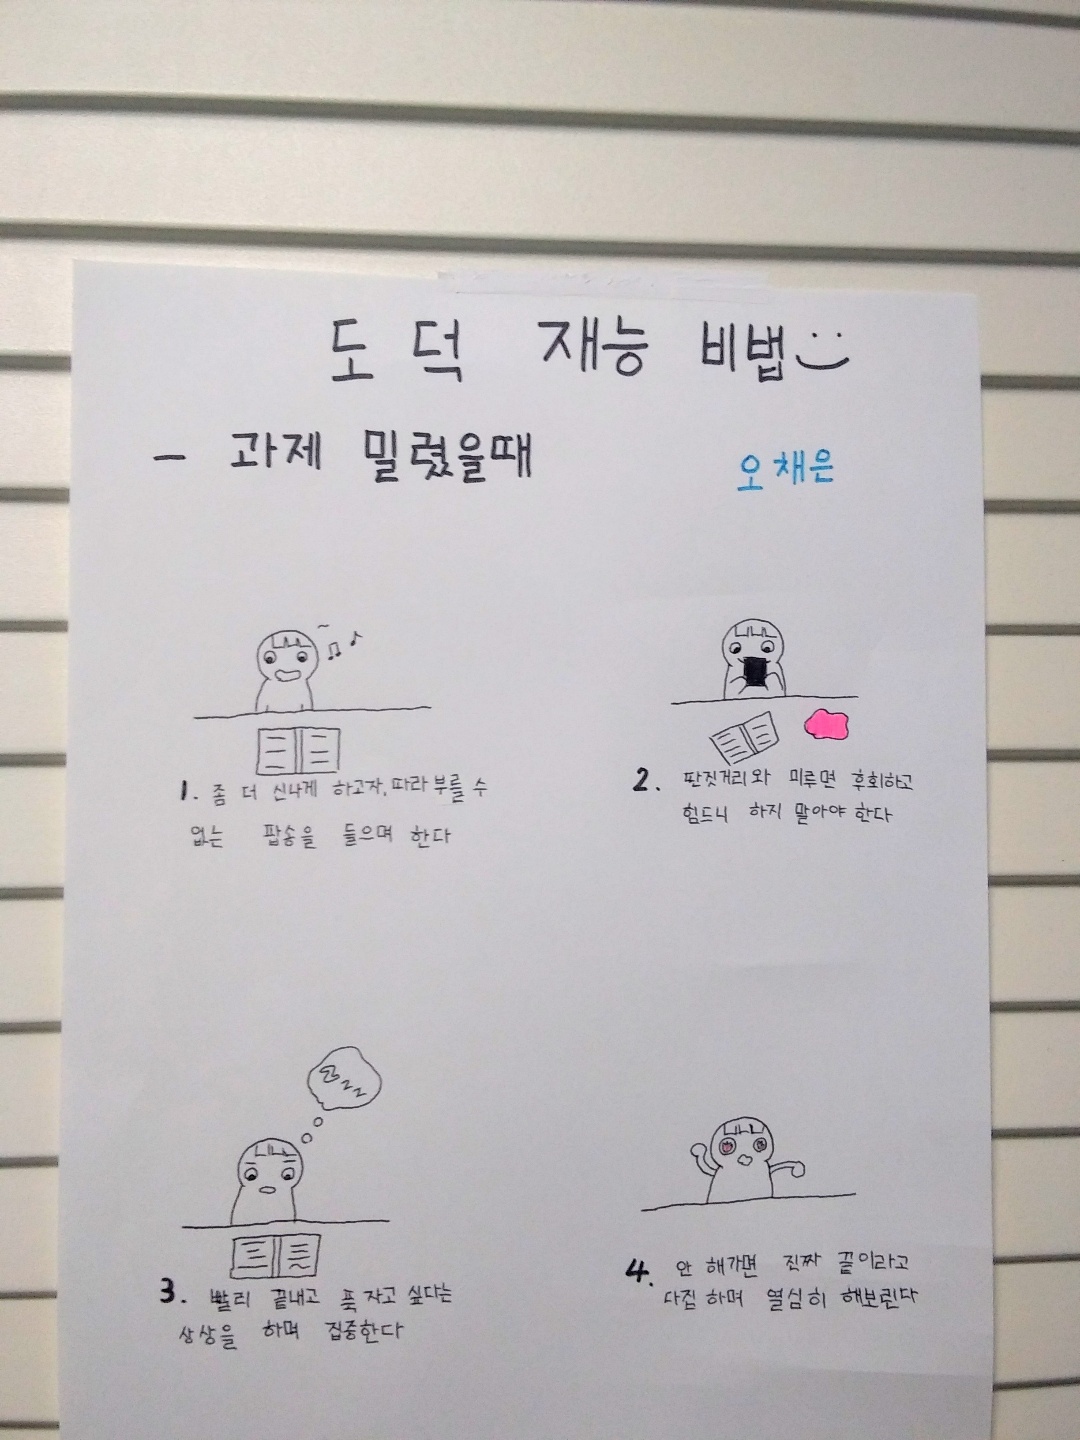 도덕 재능 비법
- 과제 밀렸을때
오채은
1. 좀 더 신나게 하고자, 따라 부를 수
없는 팝송을 들으며 한다
2. 딴짓거리와 미루면 후회하고
힘드니 하지 말아야 한다
zzz
3. 빨리 끝내고 푹 자고 싶다는
상상을 하며 집중한다
4. 안 해가면 진짜 끝이라고
다집 하며 열심히 해보린다